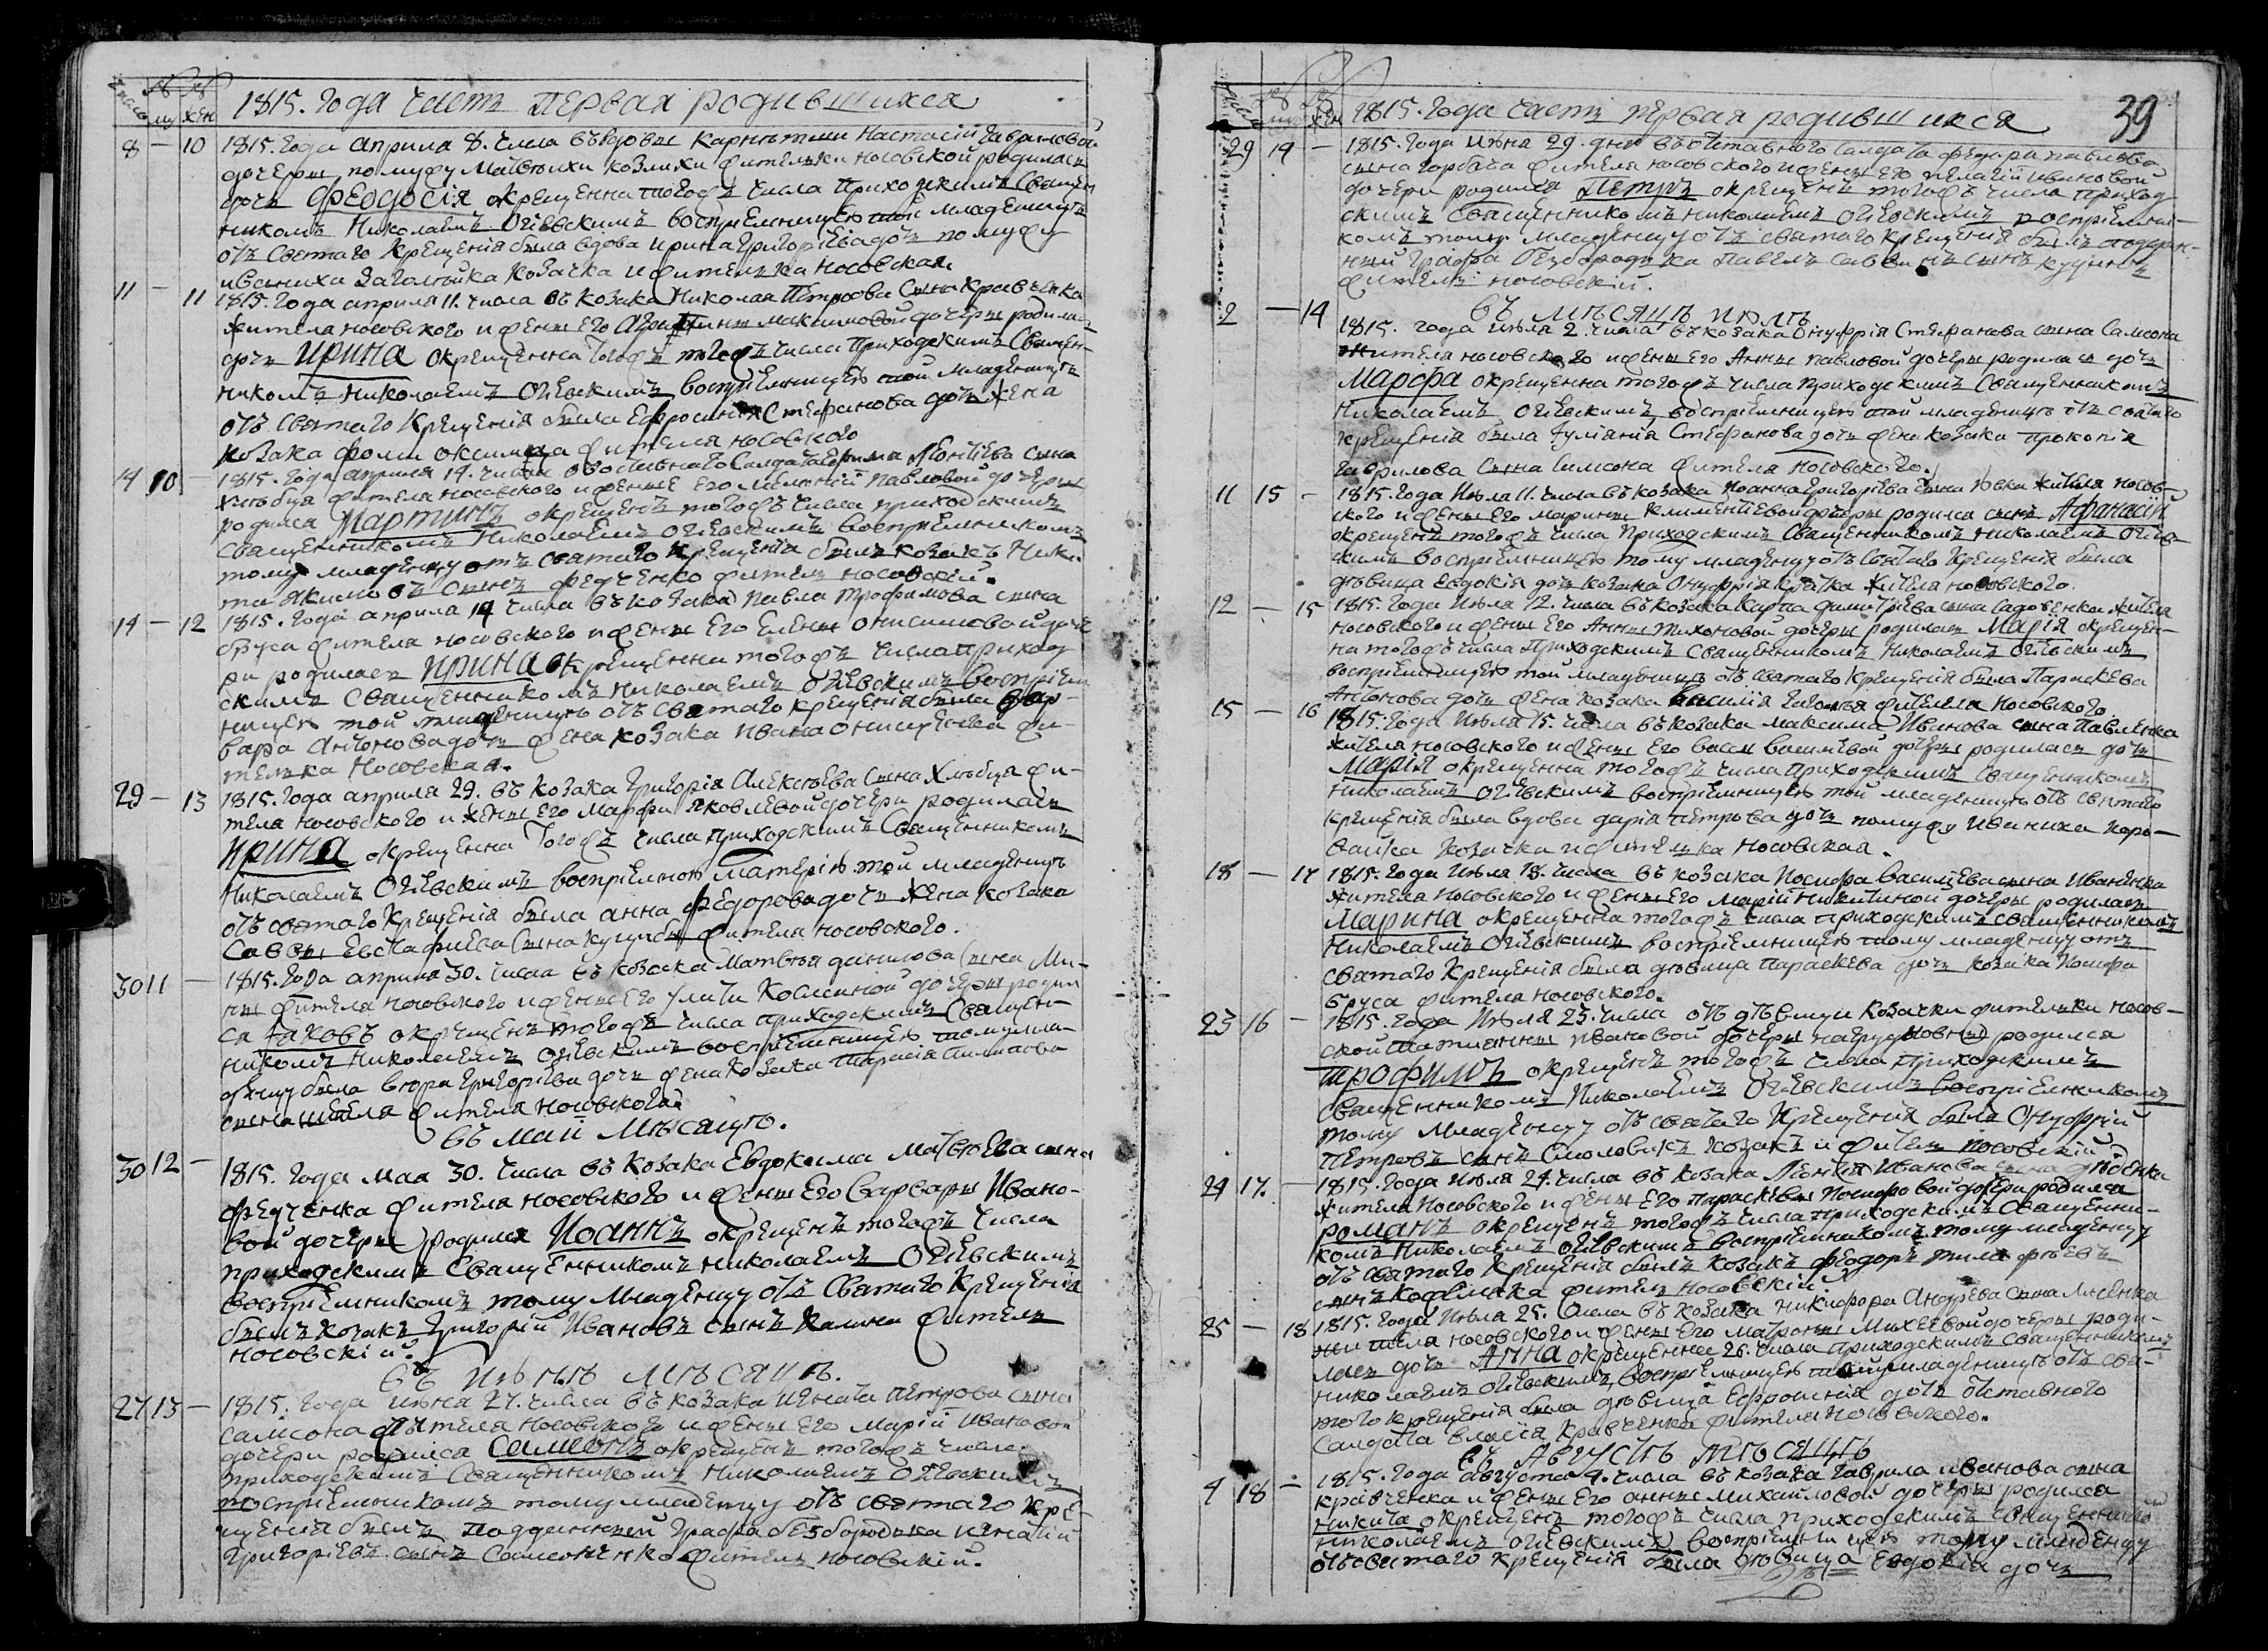 числа му жен 1815. Года часть первая родившихся
8 — 10 1815. Года априля 8. числа въ вдовы Карпатыи Настасіи Гавриловой
дочеры по мужу Матвѣихи Козлихи жителки носовской родилась
дочь Феодосія окрещенна тогожъ числа Приходскимъ Священ
никомъ Николаемъ Огіевскимъ воспріемницею той младеницѣ
отъ Святаго Крещенія была вдова Ирина Григоріева дочь по мужу
иваниха Заголиика Козачка и жителька Носовская.
11 — 11 1815. Года априля 11. числа въ козака Николая Петрова сына Кравченка
жителя носовского и жены его Агрипины Максимовой дочеры родилась
дочь Ирина окрещенна тогожъ числа Приходскимъ Священ-
никомъ Николаемъ Огіевскимъ воспріемницею той младеницѣ
отъ Святаго Крещенія была Ефросинія Стефанова дочь жена
козака Фомы жителя носовского
14 10 — 1815. Года априля 14. числа отставного Салдата Леонтіева сына
Хлѣбца жителя носовского и жены его Меланіи Павловой дочеры
родился Мартинъ окрещенъ тогожъ числа приходскимъ
Священникомъ Николаемъ Огіевскимъ Воспріемникомъ
тому младенцу отъ Святаго Крещенія былъ козакъ Ники
та Якимовъ сынъ Федченко житель носовскій.
14 — 12 1815. Года априля 14 числа въ козака Павла Трофимова сына
Бруса жителя носовского и жены его Елены Онисимовой доче
ри родилась Ирина окрещенна тогожъ числа приход
скимъ Священникомъ Николаемъ Огіевскимъ Воспріем
ницею той младеницѣ отъ Святаго Крещенія была Вар-
вара Антонова дочь жена козака Ивана Онищенка жи-
телька Носовская.
29 — 13 1815. Года априля 29. въ козака Григорія Алексѣева сына Хлѣбца жи-
теля носовского и жены его Марфы Яковлевой дочери родилась
Ирина окрещенна тогожъ числа приходскимъ Священникомъ
Николаемъ Огіевскимъ воспріемною Матерію той младеницѣ
отъ святаго Крещенія была анна Федорова дочь жена козака
Саввы Евстафіева сына жителя носовского.
30 11 — 1815. Года априля 30. числа въ козака Матвѣя данилова сына Ми-
ны жителя носовского и жены его Улиты Космыной дочеры родил
ся Іаковъ окрещенъ тогожъ числа приходскимъ Священ-
никомъ Николаемъ Огіевскимъ воспріемницею тому мла-
денцу была Григоріева дочь жена козака Тарасія
сына жителя носовского
въ Маіи Мѣсяцѣ.
30 12 — 1815. Года Мая 30. числа въ козака Евдокима Матвѣева сына
Федченка жителя носовского и жены его Варвары Ивано-
вой дочеры родился Иоаннъ окрещенъ тогожъ числа
приходскимъ Священникомъ Николаемъ Огіевскимъ
Воспріемникомъ тому Младенцу отъ Святаго Крещенія
былъ козакъ Григорій Ивановъ сынъ Калина житель
носовскій.
въ Июнѣ мѣсяцѣ.
27 13 — 1815. Года июня 27. числа въ козака Игната Петрова сына
Самсона жителя носовского и жены его Маріи Ивановой
дочери родился Самсонъ окрещенъ тогожъ числа
приходскимъ Священникомъ Николаемъ Огіевскимъ
воспріемникомъ тому младенцу отъ святаго кре-
щенія былъ подданный Графа безбородька Игнатій
Григоріевъ сынъ Самсоненко житель носовскій.
39
1815. Года часть первая родившихся
29 14 — 1815. Года июня 29. дня въ отставного салдата федора павлова
сына горбача жителя носовского и жены его пелагіи ивановой
дочери родился Петръ окрещенъ тогожъ числа приход
скимъ Священникомъ николаемъ огіевскимъ воспріемни-
комъ тому младенцу отъ святаго крещенія былъ поддан-
ный графа безбородька Павелъ Саввинъ сынъ
житель носовскій.
въ мѣсяцѣ июлѣ
2 — 14 1815. года июля 2. числа въ козака Онуфрія Стефанова сына Самсона
жителя носовского и жены его Анны павловой дочеры родилась дочь
Марфа окрещенна тогожъ числа приходскимъ Священникомъ
Николаемъ огіевскимъ, воспріемницею той младеницѣ отъ святаго
крещенія была Іуліанія Стефанова дочь жена козака прокопія
Гаврилова сына Самсона жителя носовского.
11 15 — 1815. Года Июля 11. числа въ козака Иоанна Григоріева сына Ювка жителя носов-
ского и жены его Марины Климентіевой дочеры родился сынъ Афанасій
окрещенъ тогожъ числа приходскимъ Священникомъ николаемъ огіев-
скимъ воспріемницею тому младенцу отъ святаго крещенія была
дѣвица евдокія дочь козака Онуфрія жителя носовского.
12 — 15 1815. Года июля 12. числа въ козака Карпа димитріева сына жителя
носовского и жены его Анны Тихоновой дочеры родилась Марія окрещен-
на тогожъ числа Приходскимъ Священникомъ Николаемъ Огіевскимъ
воспріемницею той младеницѣ отъ святаго крещенія была Параскева
Антонова дочь жена козака василія жителя носовского.
15 — 16 1815. Года Июля 15. числа въ козака максима Иванова сына Павленка
жителя носовского и жены его васы васильевой дочеры родилась дочь
Марія окрещенна тогожъ числа приходскимъ Священникомъ
Николаемъ огіевскимъ воспріемницею той младеницѣ отъ святаго
крещенія была вдова дарія петрова дочь по мужу Иваниха Каро-
ваика козачка и жителька носовская.
18 — 17 1815. Года Июля 18. числа въ козака Иосифа Василіева сына Иваненка
жителя носовского и жены его маріи никитиной дочеры родилась
Марина окрещенна тогожъ числа приходскимъ священникомъ
Николаемъ огіевскимъ воспріемницею тому младенцу отъ
святаго крещенія была дѣвица параскева дочь козака Иосифа
бруса жителя носовского.
23 16 — 1815. Года Июля 23. числа отъ дѣвици козачки жителики носов-
ской Татіянны ивановой дочеры родился
трофимъ окрещенъ тогожъ числа приходскимъ
Священникомъ Николаемъ Огіевскимъ воспріемникомъ
тому младенцу отъ святаго крещенія былъ Онуфрій
Петровъ сынъ козакъ и житель носовскій.
24 17. — 1815. Года июля 24. числа въ козака Леонтія Иванова сына
жителя носовского и жены его параскевы иосифовой дочери родился
романъ окрещенъ тогожъ числа приходскимъ Священни-
комъ николаемъ огіевскимъ воспріемникомъ тому младенцу
отъ святаго крещенія былъ козакъ феодоръ тимофѣевъ
сынъ житель носовскій
25 — 18 1815. Года Июля 25. числа въ козака никифора Андреева сына
жителя носовского и жены его матроны Михеевой дочеры роди-
лась дочь Анна окрещенна 26. числа приходскимъ священникомъ
николаемъ огіевскимъ, воспріемницею той младеницѣ отъ свя-
того крещенія была дѣвица Ефросинія дочь отставного
салдата власія кравченка жителя носовского.
въ августѣ мѣсяцѣ
4 18 — 1815. Года августа 4. числа въ козака гаврила иванова сына
кравченка и жены его анны михайловой дочеры родился
никита окрещенъ тогожъ числа приходскимъ священнико
николаемъ огіевскимъ воспріемницею тому младенцу
отъ святаго крещенія была дѣвица евдокія дочь